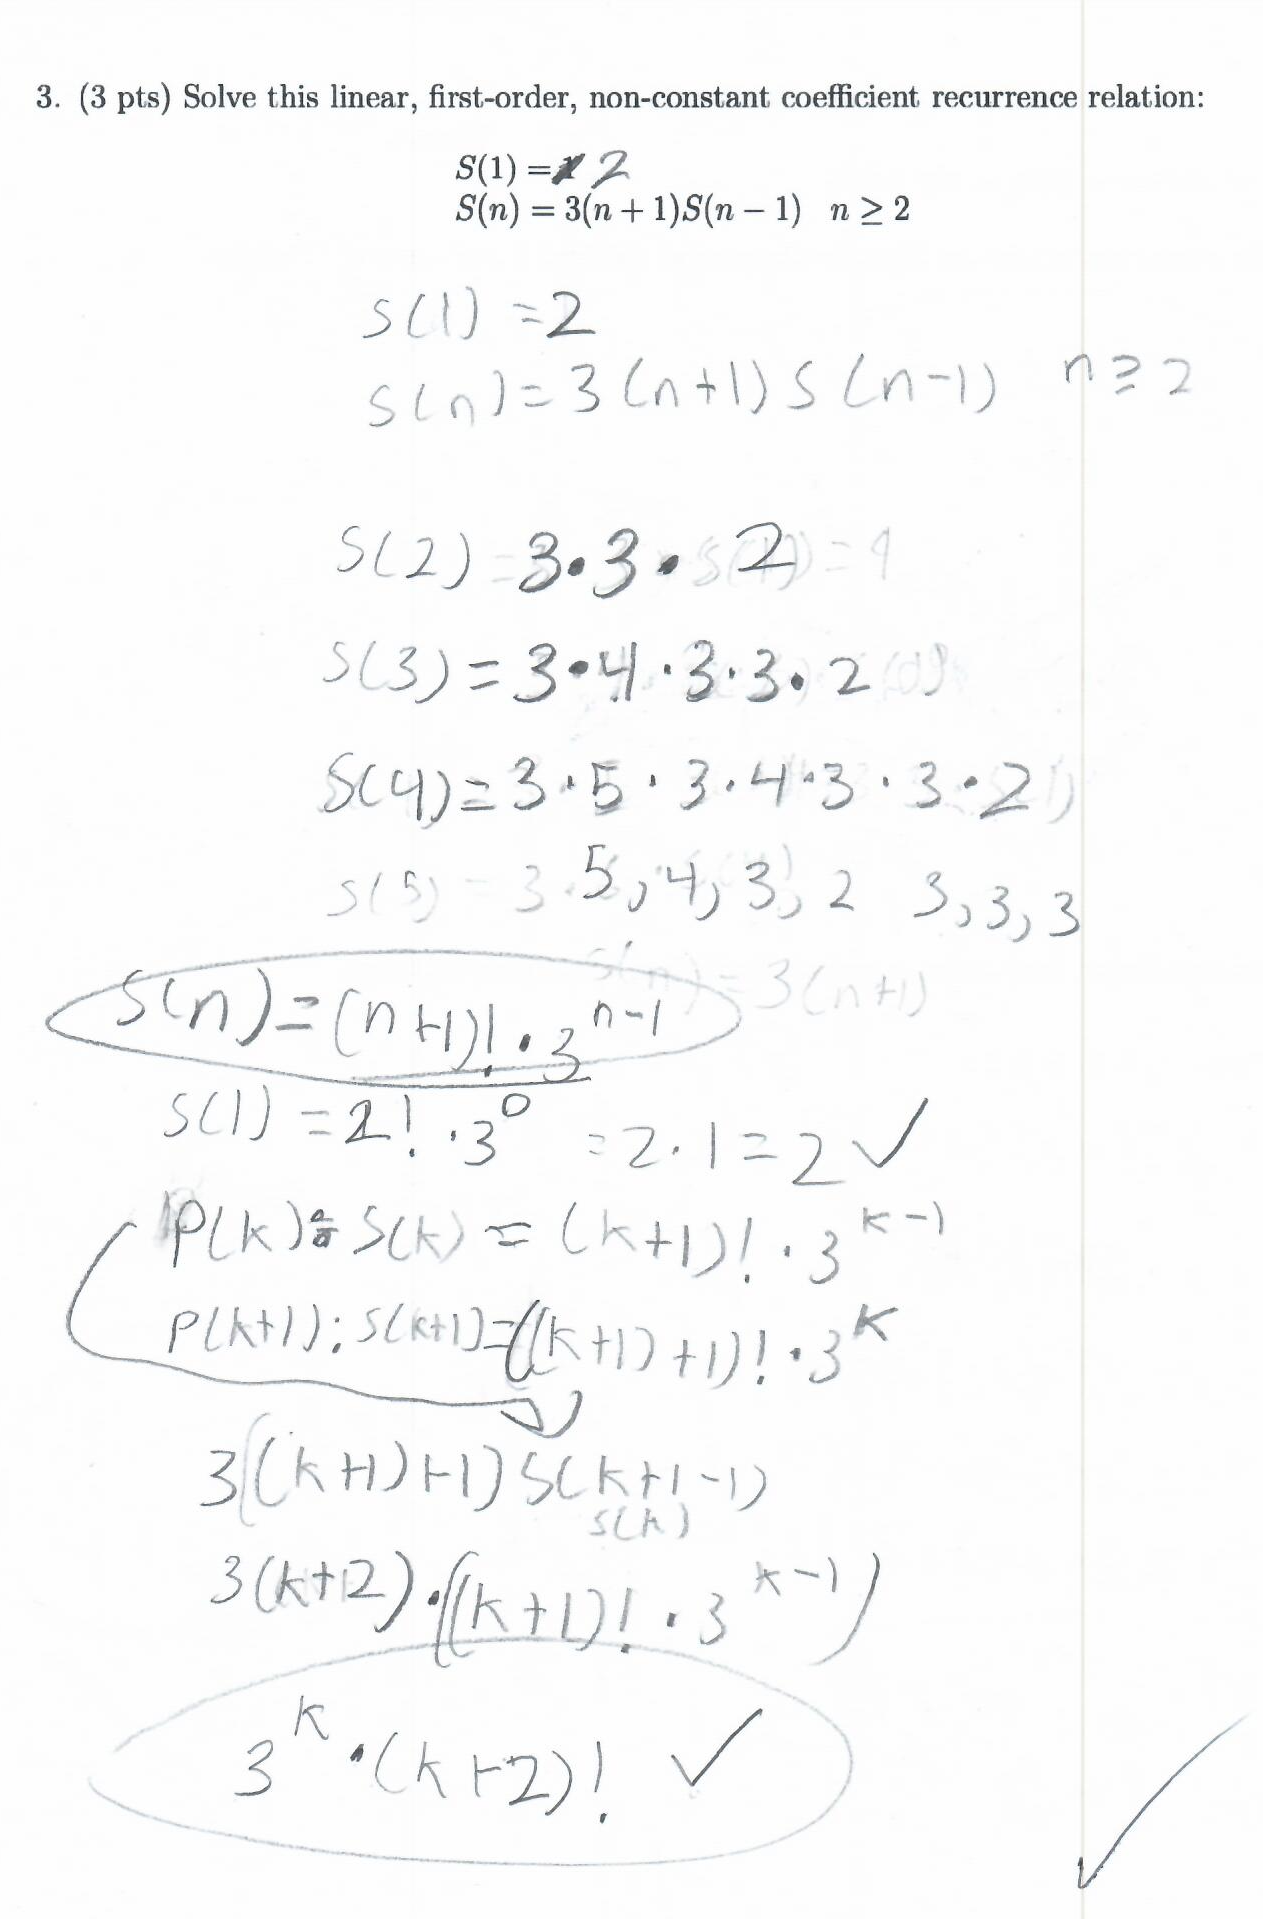 3. (3 pts) Solve this linear, first-order, non-constant coefficient recurrence relation:
S(1) = 2
S(n) = 3(n + 1)S(n − 1) n ≥ 2
S(1) = 2
S(n) = 3(n+1) S(n-1) n ≥ 2
S(2) = 3·3·2
S(3) = 3·4·3·3·2
S(4) = 3·5·3·4·3·3·2
5, 4, 3, 2 3, 3, 3
S(n) = (n+1)! · 3^{n-1}
S(1) = 2! · 3^0 = 2·1 = 2 ✓
P(k): S(k) = (k+1)! · 3^{k-1}
P(k+1): S(k+1) = ((k+1)+1)! · 3^k
3((k+1)+1) S(k+1-1)
S(k)
3(k+2)·((k+1)! · 3^{k-1})
3^k · (k+2)! ✓